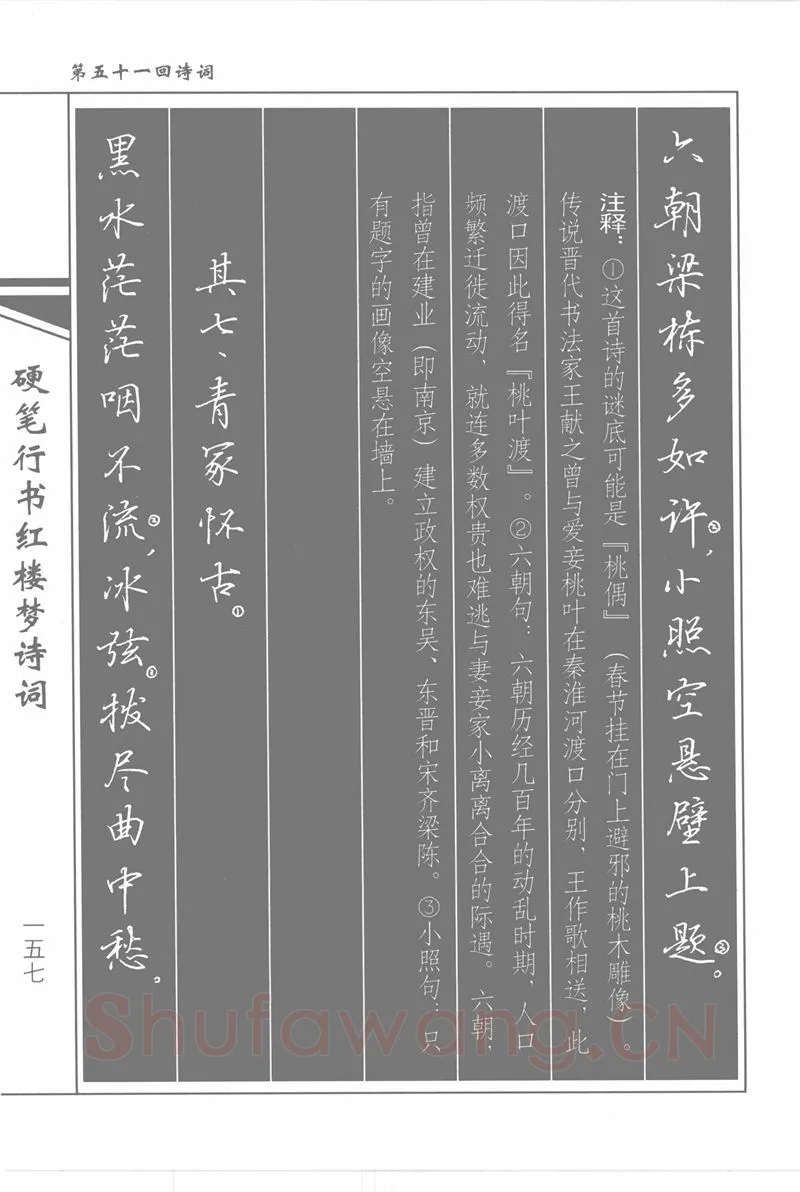 第五十一回诗词
六朝梁栋多如许②，小照空悬壁上题③。
注释：①这首诗的谜底可能是『桃偶』（春节挂在门上避邪的桃木雕像）。
传说晋代书法家王献之曾与爱妾桃叶在秦淮河渡口分别，王作歌相送，此
渡口因此得名『桃叶渡』。②六朝句：六朝历经几百年的动乱时期，人口
频繁迁徙流动，就连多数权贵也难逃与妻妾家小离离合合的际遇。六朝，
指曾在建业（即南京）建立政权的东吴、东晋和宋齐梁陈。③小照句：只
有题字的画像空悬在墙上。
其七、青冢怀古①
黑水茫茫咽不流②，冰弦③拨尽曲中愁。
硬笔行书红楼梦诗词
一五七
Shufawang.CN